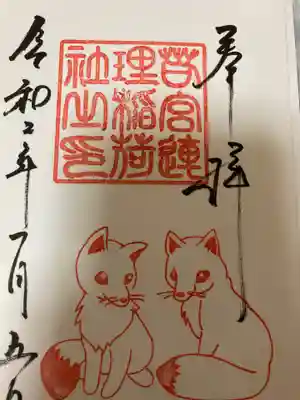 奉拝
若宮連
理稲荷
社之印
令和二年一月五日